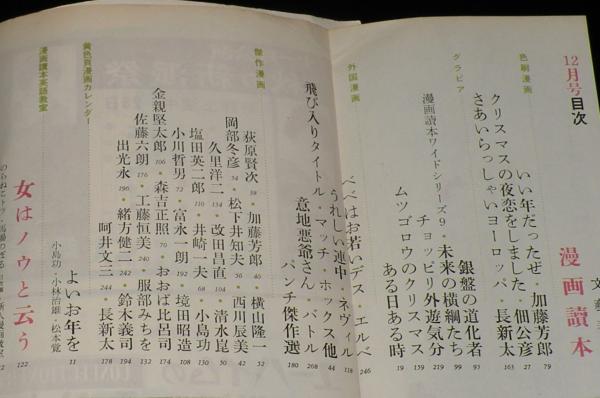 文藝
漫画讀本
12月号目次
色刷漫画
いい年だったぜ・加藤芳郎 93
クリスマスの夜恋をしました・佃公彦 27
さあいらっしゃいヨーロッパ・長新太 163
グラビア
銀盤の道化者 79
漫画読本ワイドシリーズ9・未来の横綱たち 99
チョッピリ外遊気分 219
ムツゴロウのクリスマス 159
ある日ある時 19
外国漫画
べべはお若いデス・エルベ 246
うれしい連中・ネヴィル 118
飛び入りタイトル・マッチ・ボックス他 44
意地悪爺さん・バトル 268
パンチ傑作選 180
傑作漫画
荻原賢次 38・加藤芳郎 40・横山隆一 52
岡部冬彦 34・松下井知夫 56・西川辰美 42
久里洋二 134・改田昌直 104・清水崑 50
塩田英二郎 110・井崎一夫 68・小島功 130
小川哲男 72・富永一朗 192・境田昭造 108
金親堅太郎 106・森吉正照 70・おおば比呂司 174
佐藤六朗 176・工藤恒美 240・服部みちを 132
出光永 196・緒方健二 242・鈴木義司 194
呵井文三 244・長新太 178
黄色頁漫画カレンダー
よいお年を 11
小島功・小林治雄・松本覚
漫画讀本英語教室
女はノウと云う 122